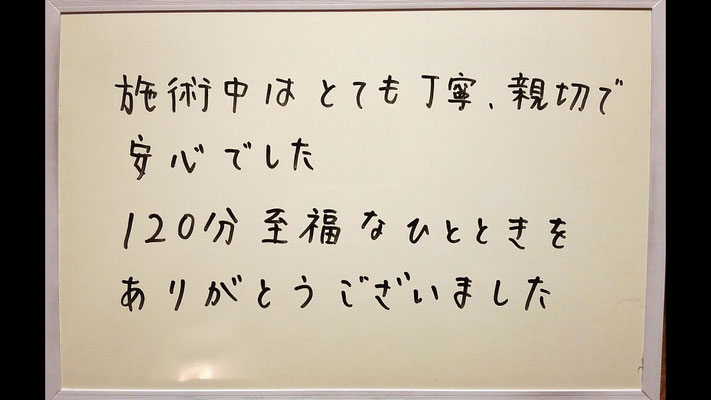 施術中はとても丁寧、親切で
安心でした
120分至福なひとときを
ありがとうございました